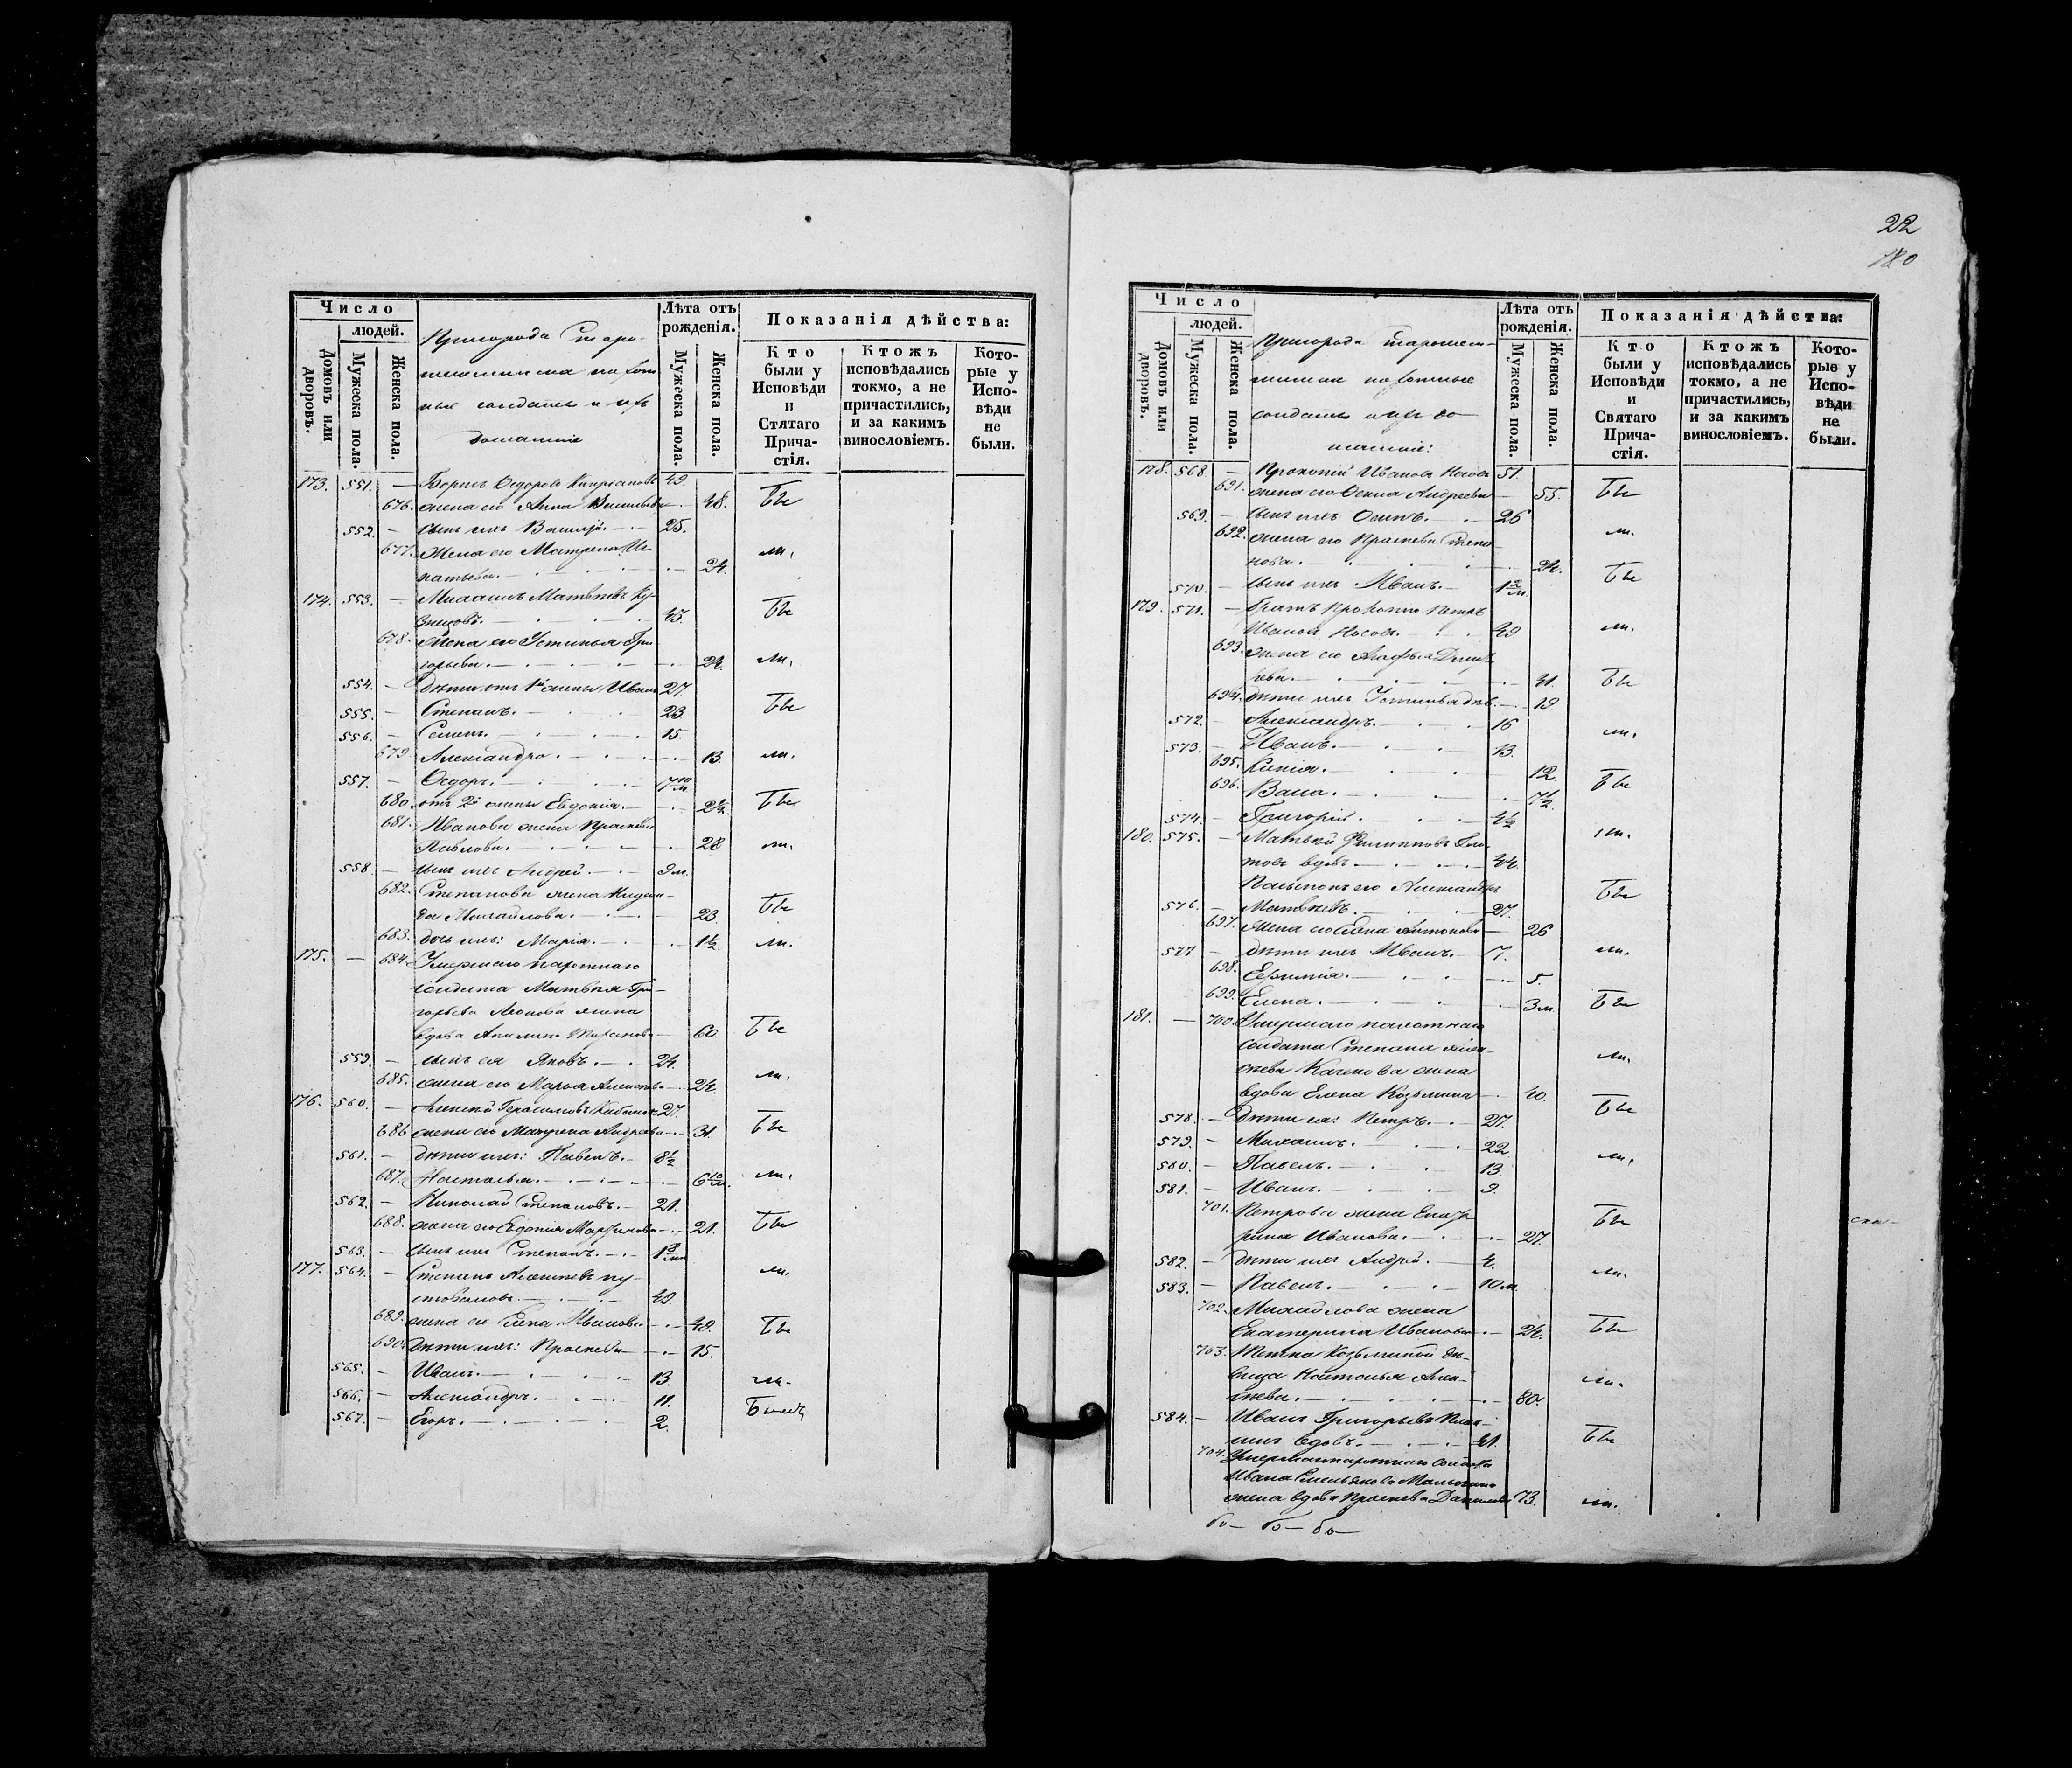 Число
людей.
Домовъ или дворовъ.
Мужеска пола.
Женска пола.
Пригорода Старо-
шешминска пахот
ные солдаты и ихъ
домашніе
Лѣта отъ рожденія.
Мужеска пола.
Женска пола.
Показанія дѣйства:
Кто были у Исповѣди и Стятаго Прича-стія.
Ктожъ исповѣдались токмо, а не причастились, и за какимъ винословіемъ.
Кото-рые у Испо-вѣди не были.
173. 551. — Борисъ Ѳедоровъ Кипріановъ 49.
676. жена его Анна Васильева 48. Бы
552. — сынъ ихъ Василій. 25.
677. Жена его Матрена Иг-
натьева. 24. ли.
174. 553. — Михаилъ Матвѣевъ Ку-
знецовъ. 45. Бы
678. Жена его Устинья Гри
горьева. 24. ли.
554. — дѣти отъ 1й жены Иванъ 27.
555. — Степанъ. 23 Бы
556. — Семенъ. 15.
679 Александра. 13. ли.
557. — Ѳедоръ. 7 10/м
680 отъ 2й жены Евдокія. 2½. Бы
681. Иванова жена Прасковья
Павлова. 28 ли.
558. — сынъ ихъ Андрей. 9 м.
682. Степанова жена
Михайлова. 23. Бы
683. дочь ихъ: Марія. 1½ ли.
175. — 684. Умершаго пахотнаго
солдата Матвѣя Гри-
горьева Леонова жена
вдова Акилина 60. Бы
559. — сынъ ея Яковъ. 24.
685. жена его Марья 24. ли.
176. 560. — Алексѣй Герасимовъ 27.
686 жена его Матрена Андреева 31. Бы
561. — дѣти ихъ: Павелъ. 8½
687. Настасья. 6 10/м. ли.
562. — Николай Степановъ. 21.
688. жена его Евдокія 21. Бы
563. — сынъ ихъ Степанъ. 1
177. 564. — Степанъ Алексѣевъ Пу-
стоваловъ. 49. ли.
689. жена его Елена Иванова 49. Бы
690. дѣти ихъ: Прасковья 15.
565. — Иванъ. 13. ли.
566. — Александръ. 11.
567. — Егоръ. 2. Были
22
Число
людей.
Домовъ или дворовъ.
Мужеска пола.
Женска пола.
Пригорода Старошеш-
минска пахотные
солдаты и ихъ до
машніе:
Лѣта отъ рожденія.
Мужеска пола.
Женска пола.
Показанія дѣйства:
Кто были у Исповѣди и Святаго Прича-стія.
Ктожъ исповѣдались токмо, а не причастились, и за какимъ винословіемъ.
Кото-рые у Испо-вѣди не были.
178. 568. — Прокопій Ивановъ Носовъ 51.
691. жена его Ѳекла Андреева 55. Бы
569. — сынъ ихъ Осипъ. 26
692. жена его Прасковья Степа ли.
нова. 24.
570. — сынъ ихъ Иванъ. 1 Бы
179. 571. — братъ Прокопія Петръ
Ивановъ Носовъ. 49 ли.
693. жена его Агафья
41. Бы
694. дѣти ихъ Устинья дѣв. 19
572. — Александръ. 16 ли.
573. — Иванъ. 13.
695. Ксенія. 12. Бы
696. Васса. 7½
574. — Григорій. 4½
180. 575. — Матвѣй Филипповъ
вдовъ. 44. ли.
его Александръ
576. — Матвѣевъ. 27. Бы
697. Жена его Елена Антонова 26
577 — дѣти ихъ Иванъ. 7. ли.
698. Ефимія. 5.
699. Елена. 3 м. Бы
181. — 700. Умершаго пахотнаго
солдата Степана Алек-
сѣева жена ли.
вдова Елена Козьмина 40.
578. — дѣти ея: Петръ. 27. Бы
579. — Михаилъ. 22.
580. — Павелъ. 13 ли.
581. — Иванъ. 9.
701. Петрова жена Екате
рина Иванова. 27. Бы
582. — дѣти ихъ Андрей. 4. ли.
583. — Павелъ. 10 м.
702. Михайлова жена
Екатерина Иванова 24. Бы
703. Тетка Козьминой дѣ-
вица Настасья Алек-
сѣева. 80. ли.
584. — Иванъ Григорьевъ
вдовъ. 41. Бы
704. Умершаго пахотнаго солдата
Ивана Емельянова
жена вдова Прасковья Данилова 73. ли.